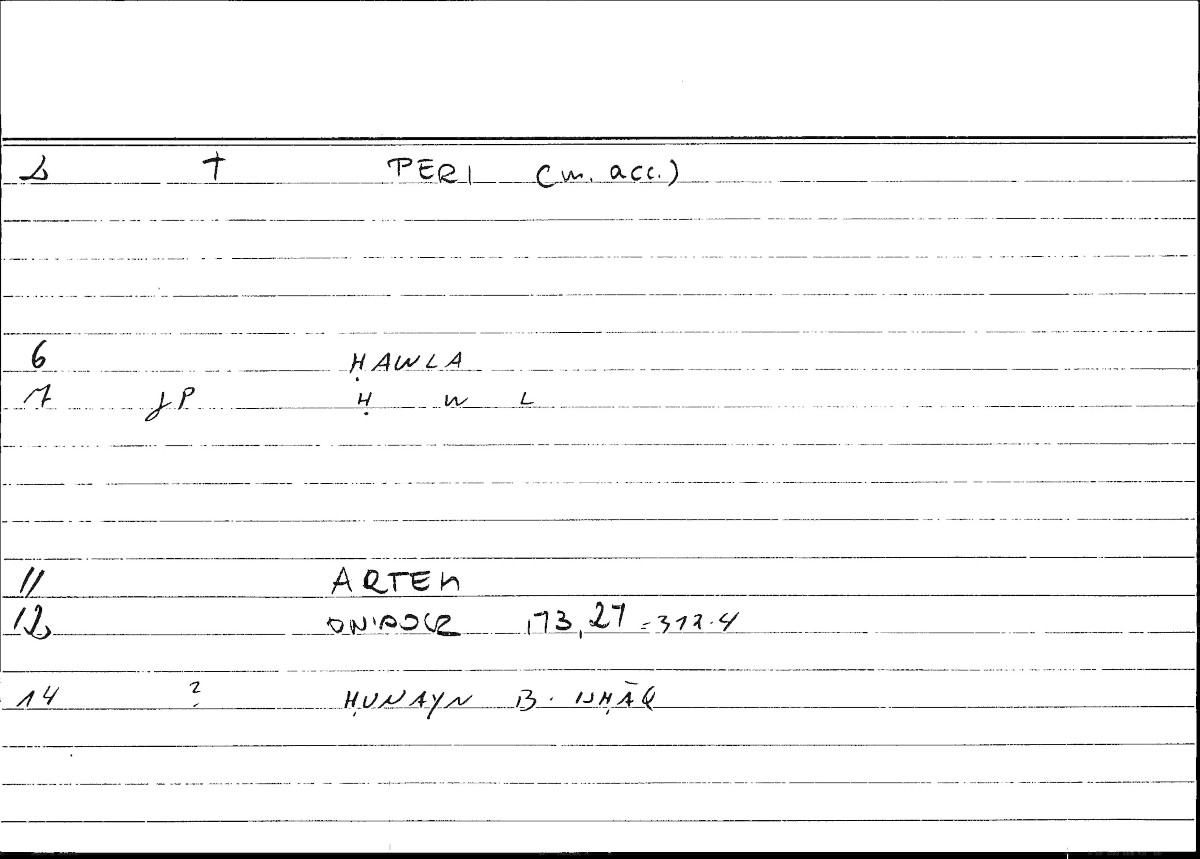 2 † PERI (m. acc.)
6 ḤAWLA
7 jP Ḥ W L
11 ARTEM
12 ONIROCR 173,27 = 312.4
14 ? ḤUNAYN B. ISḤĀQ